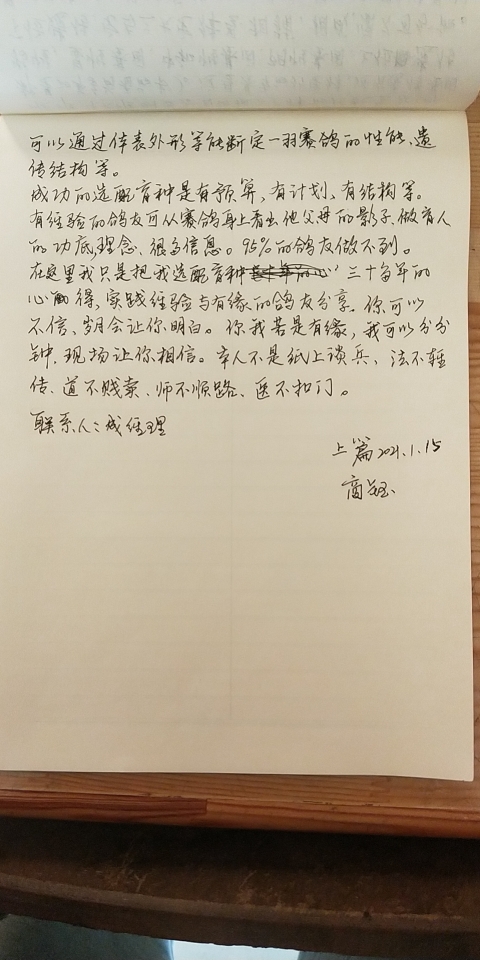 可以通过体表外形等能断定一羽赛鸽的性能、遗
传结构等。
成功的选配育种是有预算,有计划,有结构等。
有经验的鸽友可从赛鸽身上看出他父母的影子、做育人
的功底,理念、很多信息。95%的鸽友做不到。
在这里我只是把我选配育种三十多年的
心得,实践经验与有缘的鸽友分享。你可以
不信、岁月会让你明白。你我若是有缘,我可以分分
钟、现场让你相信。本人不是纸上谈兵、法不轻
传、道不贱卖、师不顺路、医不扣门。
联系人:成经理
上篇 2021.1.15
商钰